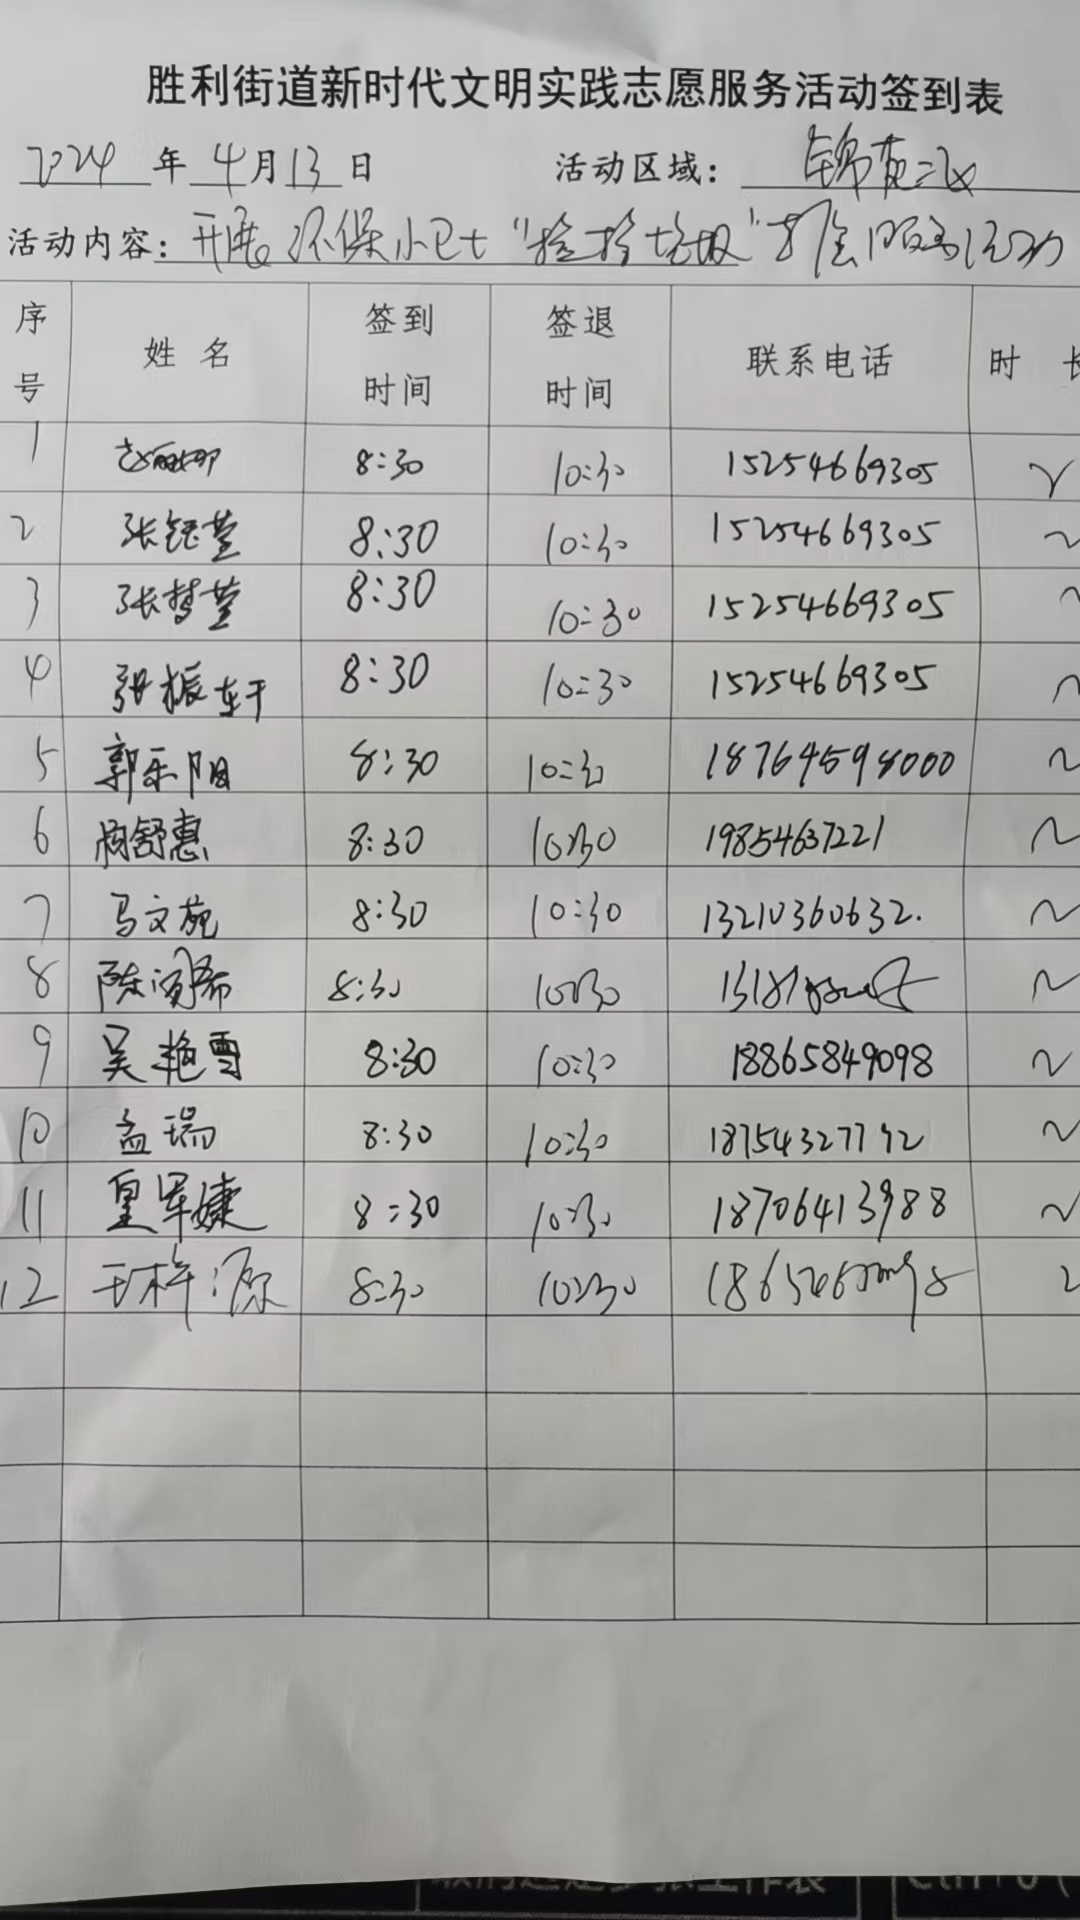 胜利街道新时代文明实践志愿服务活动签到表
2024年4月13日 活动区域：锦苑二区
活动内容：开展环保小卫士"捡拾垃圾"志愿服务活动
序号 姓名 签到时间 签退时间 联系电话 时长
1 赵丽娜 8:30 10:30 15254669305 2
2 张钰萱 8:30 10:30 15254669305 2
3 张梦萱 8:30 10:30 15254669305 2
4 张振轩 8:30 10:30 15254669305 2
5 郭乐阳 8:30 10:30 18764598000 2
6 舒惠 8:30 10:30 19854637221 2
7 马文苑 8:30 10:30 13210360632. 2
8 陈 8:30 10:30 2
9 吴艳雪 8:30 10:30 18865849098 2
10 孟瑞 8:30 10:30 18754327792 2
11 皇军婕 8:30 10:30 18706413988 2
12 王梓源 8:30 10:30 2